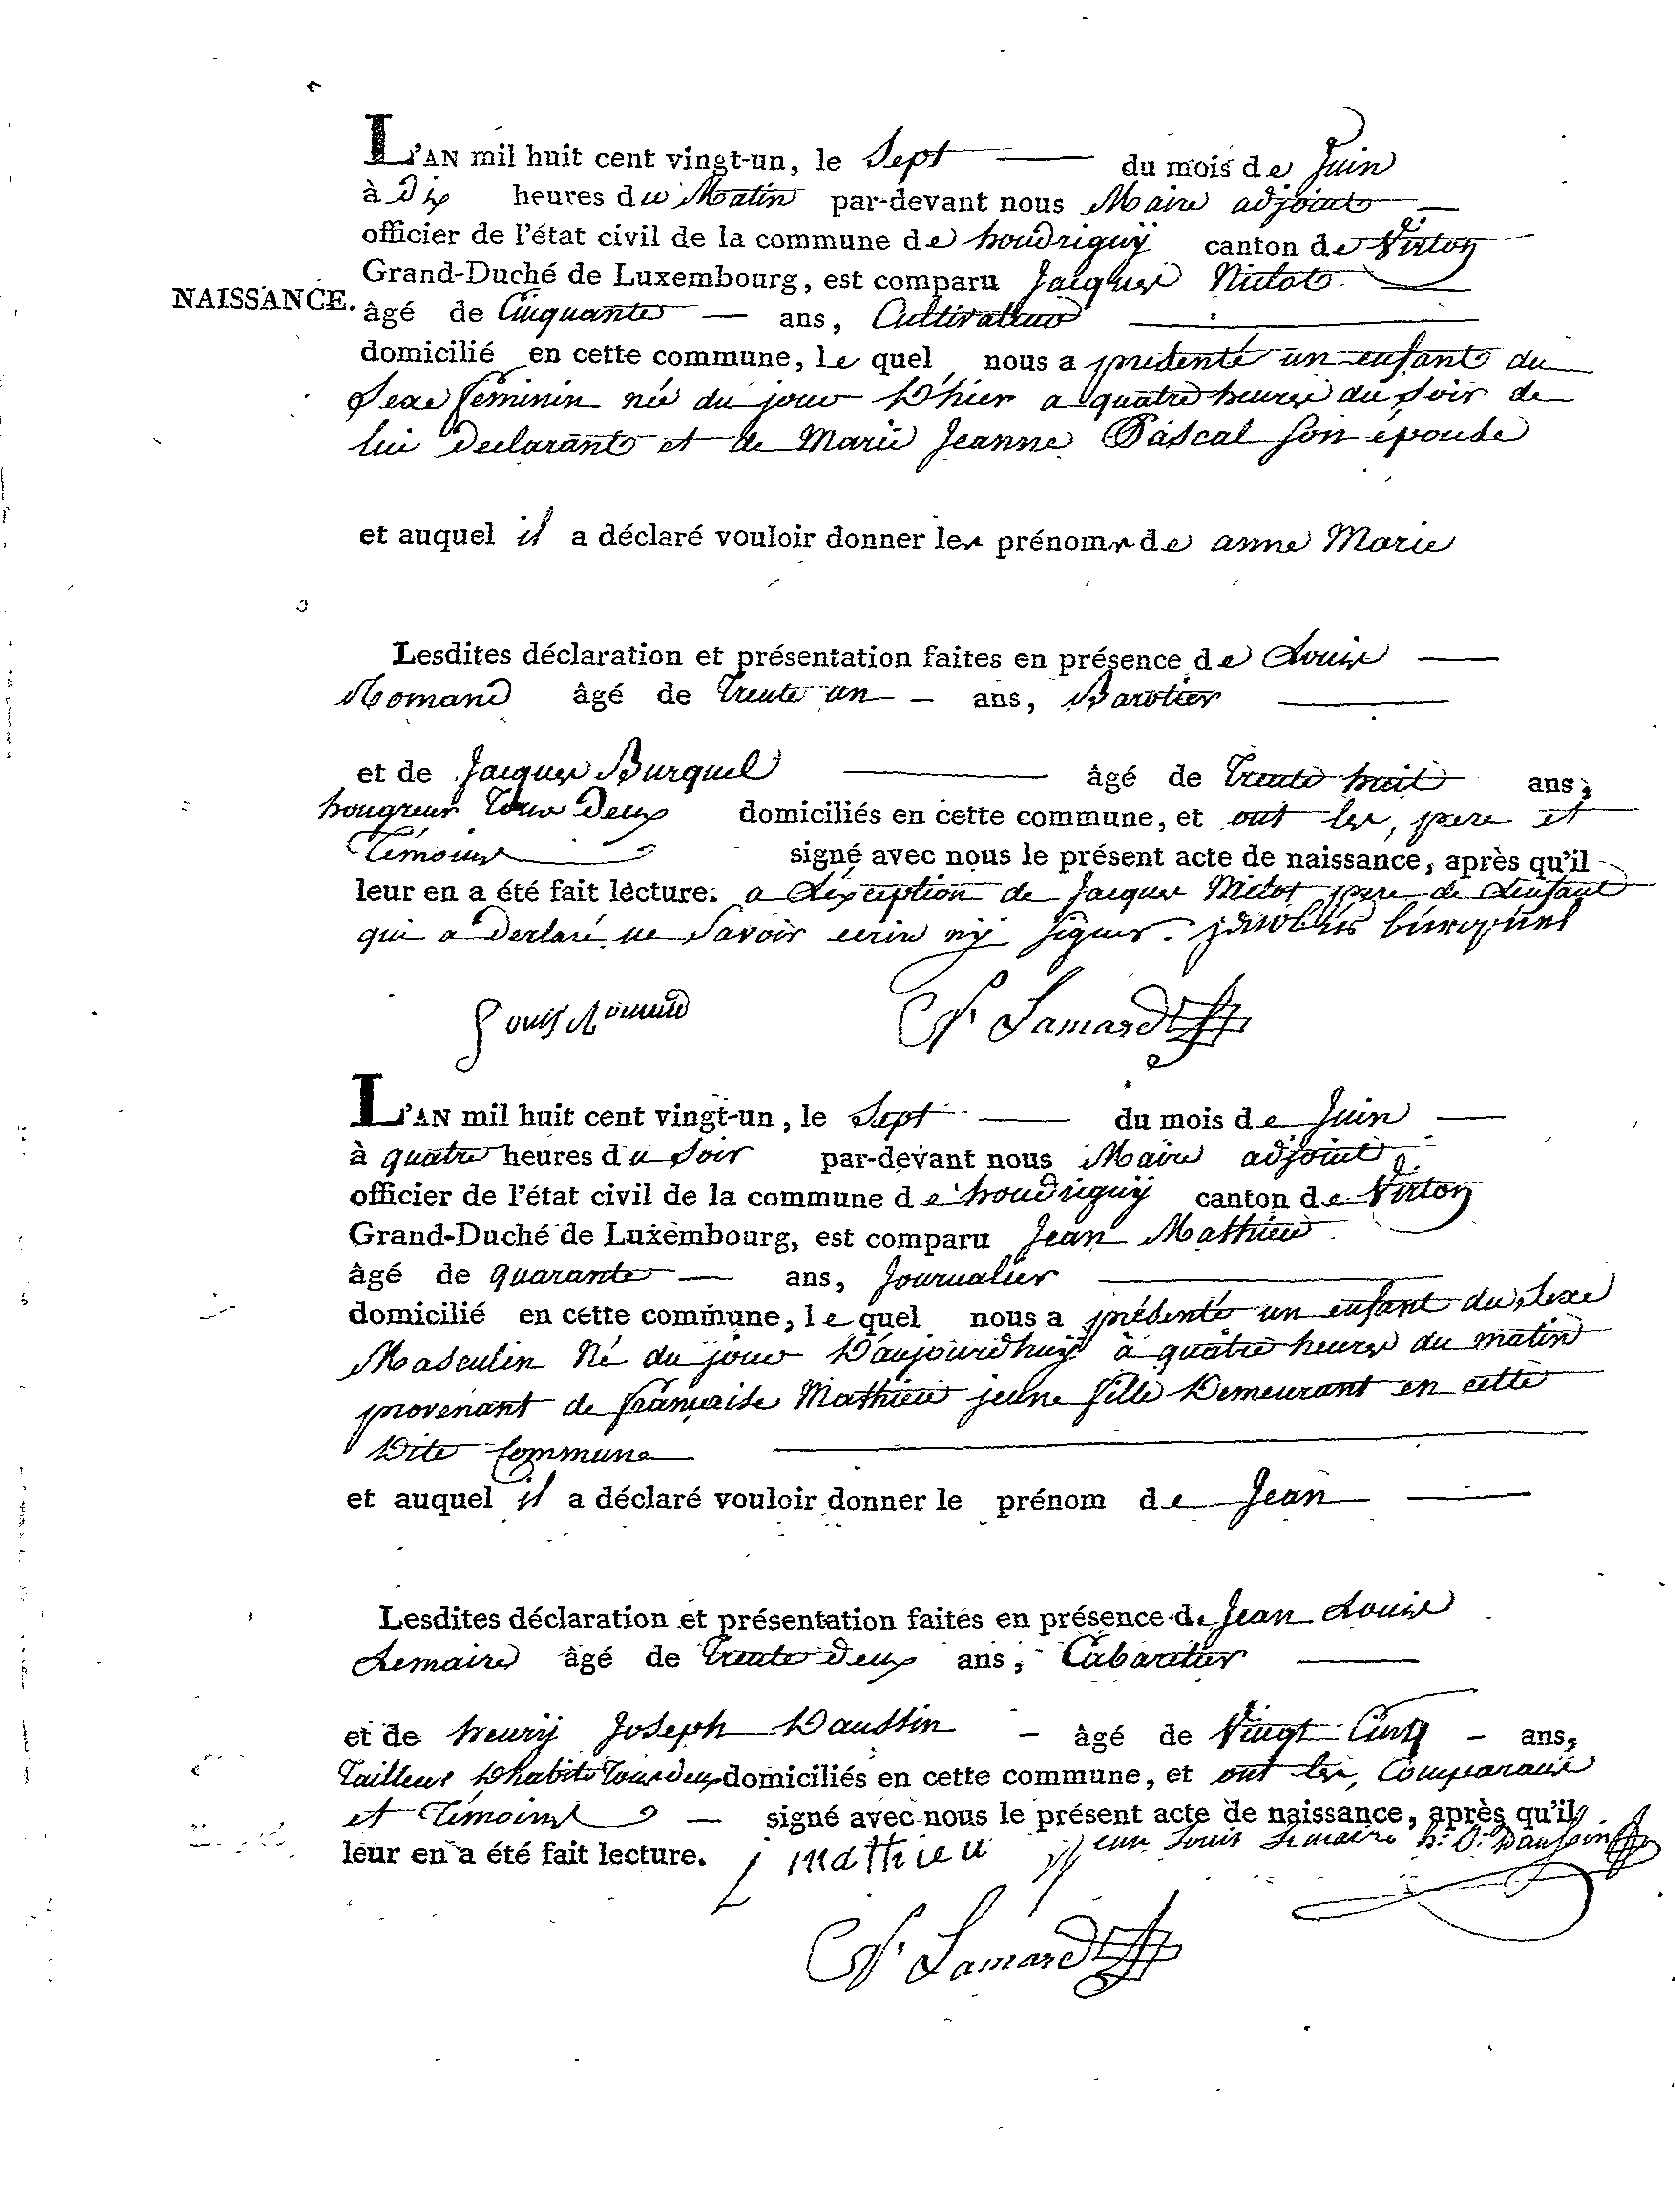 L'AN mil huit cent vingt-un, le Sept du mois de Juin
à Dix heures du Matin par-devant nous Maire adjoint
officier de l'état civil de la commune de houdrigny canton de Virton
Grand-Duché de Luxembourg, est comparu Jacques Niclot
NAISSANCE.
âgé de Cinquante ans, Cultivateur
domicilié en cette commune, le quel nous a présenté un enfant du
Sexe féminin née du jour D'hier a quatre heures du soir de
lui Declarant et de Marie Jeanne Pascal son épouse
et auquel il a déclaré vouloir donner les prénoms de anne Marie
Lesdites déclaration et présentation faites en présence de Louis
âgé de Trente un ans,
et de Jacques Burquel âgé de Trente huit ans,
hongreur Tous Deux domiciliés en cette commune, et ont les, pere et
Témoins signé avec nous le présent acte de naissance, après qu'il
leur en a été fait lecture. a L'exception de Jacques Niclot pere de L'enfant
qui a Declaré ne Savoir ecrire ny signer. jacobus burquel
Louis
Lamard
L'AN mil huit cent vingt-un, le Sept du mois de Juin
à quatre heures du Soir par-devant nous Maire adjoint
officier de l'état civil de la commune de houdrigny canton de Virton
Grand-Duché de Luxembourg, est comparu Jean Mathieu
âgé de quarante ans, Journalier
domicilié en cette commune, le quel nous a présenté un enfant du sexe
Masculin Né du jour D'aujourdhuy à quatre heures du matin
provenant de françoise Mathieu jeune fille Demeurant en cette
Dite Commune
et auquel il a déclaré vouloir donner le prénom de Jean
Lesdites déclaration et présentation faites en présence de Jean Louis
Lemaire âgé de Trente Deux ans, Cabaretier
et de henry Joseph Daussin âgé de Vingt Cinq ans,
Tailleur D'habits Tous deux domiciliés en cette commune, et ont les, Comparant
et Témoins signé avec nous le présent acte de naissance, après qu'il
leur en a été fait lecture. j mathieu jean Louis Lemaire h: J: Daussin
Lamard